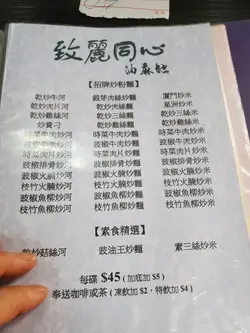 致麗同心
油麻地
【招牌炒粉麵】
乾炒牛河 銀芽肉絲炒麵 廈門炒米
乾炒肉片河 乾炒肉絲麵 星洲炒米
乾炒雞絲河 乾炒雞絲麵 乾炒三絲米
炒貴刁 時菜牛肉炒麵 乾炒雞絲米
時菜牛肉炒河 豉椒牛肉炒麵 時菜牛肉炒米
豉椒牛肉炒河 時菜肉片炒麵 豉椒牛肉炒米
時菜肉片炒河 豉椒排骨炒麵 時菜肉片炒米
豉椒排骨炒河 豉椒火腩炒麵 豉椒排骨炒米
豉椒火腩炒河 枝竹火腩炒麵 豉椒火腩炒米
枝竹火腩炒河 豉椒魚柳炒麵 枝竹火腩炒米
豉椒魚柳炒河 枝竹魚柳炒麵 豉椒魚柳炒米
枝竹魚柳炒河 枝竹魚柳炒米
【素食精選】
乾炒菇絲河 豉油王炒麵 素三絲炒米
每碟 $45 (加底加 $5)
奉送咖啡或茶 (凍飲加 $2,特飲加 $4)